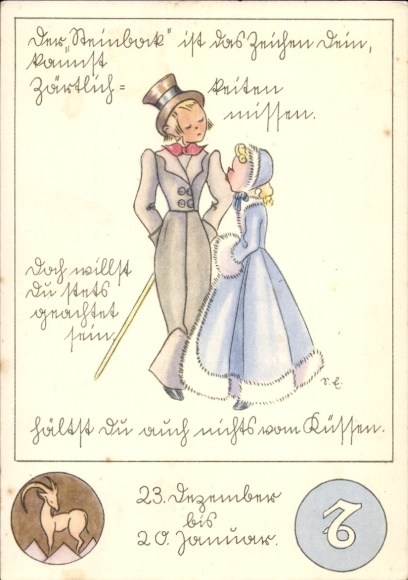 Der „Steinbock" ist das Zeichen Dein,
kannst
Zärtlich= keiten
missen.
Doch willst
Du stets
geachtet
sein,
hältst Du auch nichts vom Küssen.
23. Dezember
bis
20. Januar.